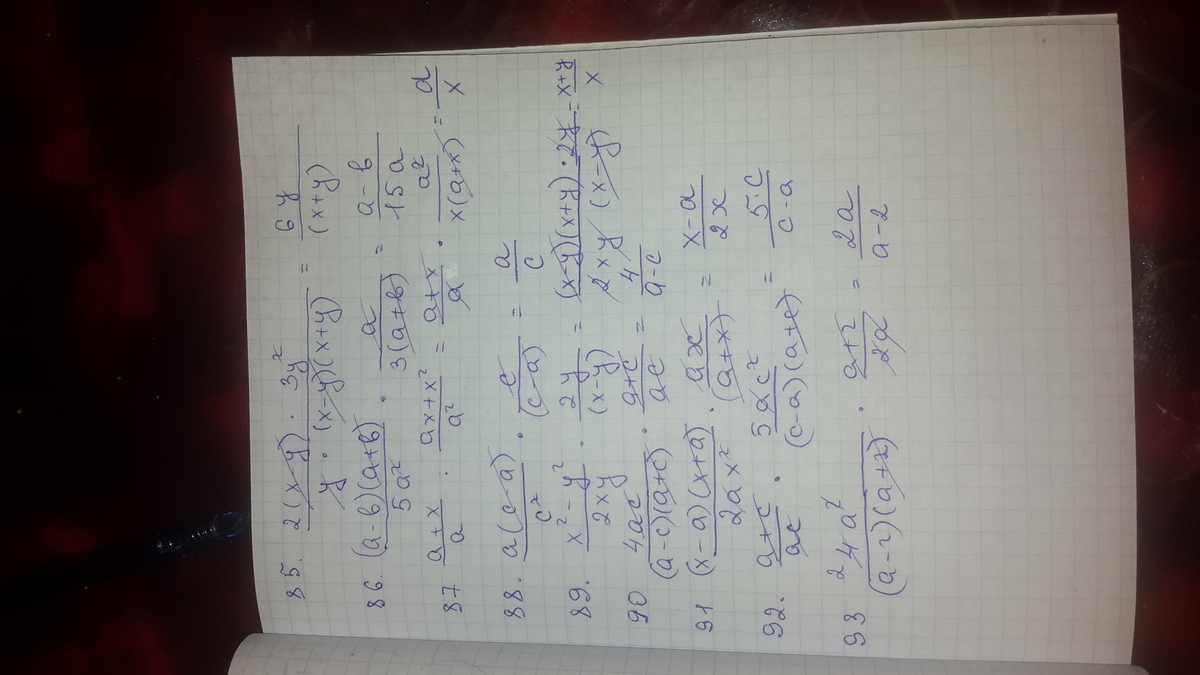 85. 2(x-y) · 3y² / y · (x-y)(x+y) = 6y / (x+y)
86. (a-b)(a+b) / 5a² · a / 3(a+b) = a-b / 15a
87 a+x / a : ax+x² / a² = a+x / a · a² / x(a+x) = a / x
88. a(c-a) / c² · c / (c-a) = a / c
89. x²-y² / 2xy · 2y / (x-y) = (x-y)(x+y) · 2y / 2xy (x-y) = x+y / x
90 4ac / (a-c)(a+c) · a+c / ac = 4 / a-c
91 (x-a)(x+a) / 2ax² · ax / (a+x) = x-a / 2x
92. a+c / ac · 5ac² / (c-a)(a+c) = 5·c / c-a
93 ²4a² / (a-2)(a+2) · a+2 / 2a = 2a / a-2